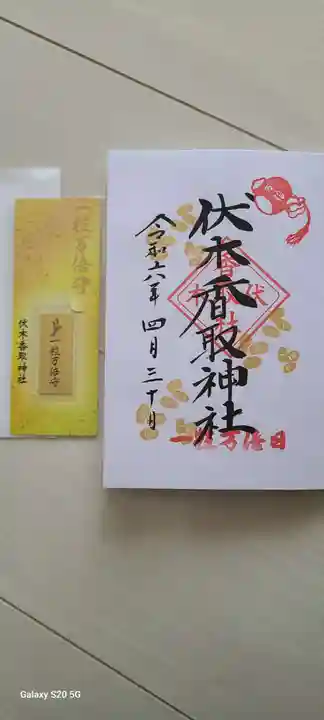 一粒万倍守
一粒万倍守
伏木香取神社
伏木香取神社
令和六年 四月三十日
一粒万倍日
Galaxy S20 5G